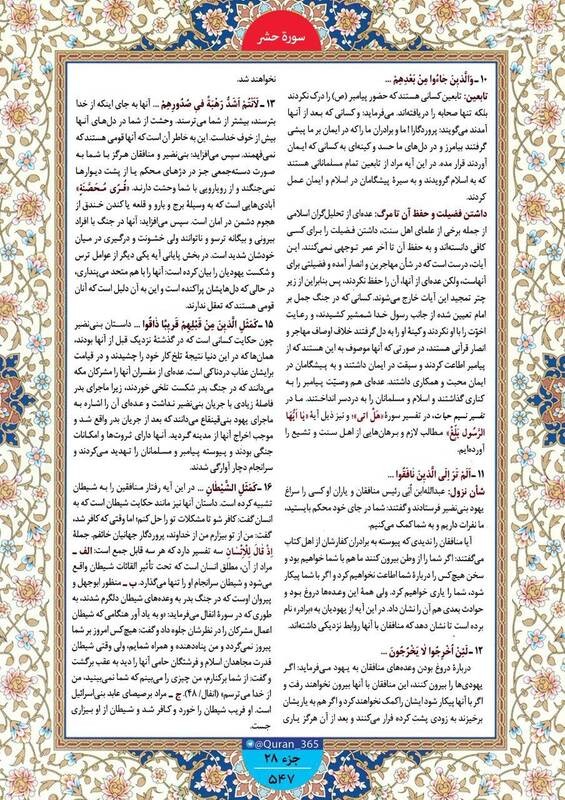 سورة حشر
۱۰ـ وَالَّذِينَ جَاءُوا مِنْ بَعْدِهِمْ ...
تابعین: تابعین کسانی هستند که حضور پیامبر (ص) را درک نکردند
بلکه تنها صحابه را دریافته‌اند. می‌فرماید: و کسانی که بعد از آنها
آمدند می‌گویند: پروردگارا! ما و برادران ما را که در ایمان بر ما پیشی
گرفتند بیامرز و در دل‌های ما حسد و کینه‌ای به کسانی که ایمان
آوردند قرار مده. در این آیه مراد از تابعین تمام مسلمانانی هستند
که به اسلام گرویدند و به سیرهٔ پیشگامان در اسلام و ایمان عمل
کردند.
داشتن فضیلت و حفظ آن تا مرگ: عده‌ای از تحلیل‌گران اسلامی
از جمله برخی از علمای اهل سنت، داشتن فضیلت را برای کسی
کافی دانسته‌اند و به حفظ آن تا آخر عمر توجهی نمی‌کنند. این
آیات، درست است که در شأن مهاجرین و انصار آمده و فضیلتی برای
آنهاست، ولکن عده‌ای از آنها، آن را حفظ نکردند، پس بنابراین از زیر
چتر تمجید این آیات خارج می‌شوند. کسانی که در جنگ جمل بر
امام تعیین شده از جانب رسول خدا شمشیر کشیدند، و رعایت
اخوّت را با او نکردند و کینهٔ او را به دل گرفتند خلاف اوصاف مهاجر و
انصار قرآنی هستند، در صورتی که آنها موصوف به این هستند که از
پیامبر اطاعت کردند و سبقت در ایمان داشتند و به پیشگامان در
ایمان محبت و همکاری داشتند. عده‌ای هم وصیّت پیامبر را به
کناری گذاشتند و اسلام و مسلمانان را به دردسر انداختند. ما در
تفسیر نسیم حیات، در تفسیر سورهٔ «هَلْ اَتی»؛ و نیز ذیل آیهٔ «یَا اَیُّهَا
الرَّسُولُ بَلِّغْ» مطالب لازم و برهان‌هایی از اهل سنت و تشیع را
آورده‌ایم.
۱۱ـ أَلَمْ تَرَ إِلَى الَّذِينَ نَافَقُوا ...
شأن نزول: عبدالله‌ابن اُبَی رئیس منافقان و یاران او کسی را سراغ
یهود بنی‌نضیر فرستادند و گفتند: شما در جای خود محکم بایستید،
ما نفرات داریم و به شما کمک می‌کنیم.
آیا منافقان را ندیدی که پیوسته به برادران کفارشان از اهل کتاب
می‌گفتند: اگر شما را از وطن بیرون کنند ما هم با شما خواهیم بود و
سخن هیچ‌کس را دربارهٔ شما اطاعت نخواهیم کرد و اگر با شما پیکار
شود، شما را یاری خواهیم کرد. ولی همهٔ این وعده‌ها دروغ بود و
حوادث بعدی هم آن را نشان داد. در این آیه از یهودیان به «برادر» نام
برده است تا نشان دهد که منافقان با آنها روابط نزدیکی داشته‌اند.
۱۲ـ لَئِنْ أُخْرِجُوا لَا يَخْرُجُونَ ...
دربارهٔ دروغ بودن وعده‌های منافقان به یهود می‌فرماید: اگر
یهودی‌ها را بیرون کنند، این منافقان با آنها بیرون نخواهند رفت و
اگر با آنها پیکار شود ایشان را کمک نخواهند کرد و اگر هم به یاریشان
برخیزند به زودی پشت کرده فرار می‌کنند و بعد از آن هرگز یاری
نخواهند شد.
۱۳ـ لَأَنْتُمْ أَشَدُّ رَهْبَةً فِي صُدُورِهِمْ ... آنها به جای اینکه از خدا
بترسند، بیشتر از شما می‌ترسند. وحشت از شما در دل‌های آنها
بیش از خوف خداست. این به خاطر آن است که آنها قومی هستند که
نمی‌فهمند. سپس می‌افزاید: بنی‌نضیر و منافقان هرگز با شما به
صورت دسته‌جمعی جز در دژهای محکم یا از پشت دیوارها
نمی‌جنگند و از رویارویی با شما وحشت دارند. «قُرًى مُحَصَّنَةٍ»
آبادی‌هایی است که به وسیلهٔ برج و بارو و قلعه یا کندن خندق از
هجوم دشمن در امان است. سپس می‌افزاید: آنها در جنگ با افراد
بیرونی و بیگانه ترسو و ناتوانند ولی خشونت و درگیری در میان
خودشان شدید است. در بخش پایانی آیه یکی دیگر از عوامل ترس
و شکست یهودیان را بیان کرده است: آنها را با هم متحد می‌پنداری،
در حالی که دل‌هایشان پراکنده است و این به آن دلیل است که آنان
قومی هستند که تعقل ندارند.
۱۵ـ كَمَثَلِ الَّذِينَ مِنْ قَبْلِهِمْ قَرِيبًا ذَاقُوا ... داستان بنی‌نضیر
چون حکایت کسانی است که در گذشتهٔ نزدیک قبل از آنها بودند،
همان‌ها که در این دنیا نتیجهٔ تلخ کار خود را چشیدند و در قیامت
برایشان عذاب دردناکی است. عده‌ای از مفسران آنها را مشرکان مکه
می‌دانند که در جنگ بدر شکست تلخی خوردند، زیرا ماجرای بدر
فاصلهٔ زیادی با جریان بنی‌نضیر نداشت و عده‌ای آن را اشاره به
ماجرای یهود بنی‌قینقاع می‌دانند که بعد از جریان بدر واقع شد و
موجب اخراج آنها از مدینه گردید. آنها دارای ثروت‌ها و امکانات
جنگی بودند و پیوسته پیامبر و مسلمانان را تهدید می‌کردند و
سرانجام دچار آوارگی شدند.
۱۶ـ كَمَثَلِ الشَّيْطَانِ ... در این آیه، رفتار منافقین را به شیطان
تشبیه کرده است. داستان آنها نیز مانند حکایت شیطان است که به
انسان گفت: کافر شو تا مشکلات تو را حل کنم؛ اما وقتی که کافر شد،
گفت: من از تو بیزارم من از خداوند، پروردگار جهانیان خائفم. جملهٔ
إِذْ قَالَ لِلْإِنْسَانِ سه تفسیر دارد که هر سه قابل جمع است: الف ـ
مراد از آن، مطلق انسان است که تحت تأثیر القائات شیطان واقع
می‌شود و شیطان سرانجام او را تنها می‌گذارد. ب ـ منظور ابوجهل و
پیروان اوست که در جنگ بدر به وعده‌های شیطان دلگرم شدند، به
طوری که در سورهٔ انفال می‌فرماید: «و به یاد آور هنگامی که شیطان
اعمال مشرکان را در نظرشان جلوه داد و گفت: هیچ‌کس امروز بر شما
پیروز نمی‌گردد و من پناه‌دهنده و همراه شمایم، ولی وقتی شیطان
قدرت مجاهدان اسلام و فرشتگان حامی آنها را دید به عقب برگشت
و گفت: از شما برکنارم، من چیزی را می‌بینم که شما نمی‌بینید، من
از خدا می‌ترسم» (انفال/ ۴۸). ج ـ مراد برصیصای عابد بنی‌اسرائیل
است. او فریب شیطان را خورد و کافر شد و شیطان از او بیزاری
جست.
@Quran_365
جزء ۲۸
۵۴۷